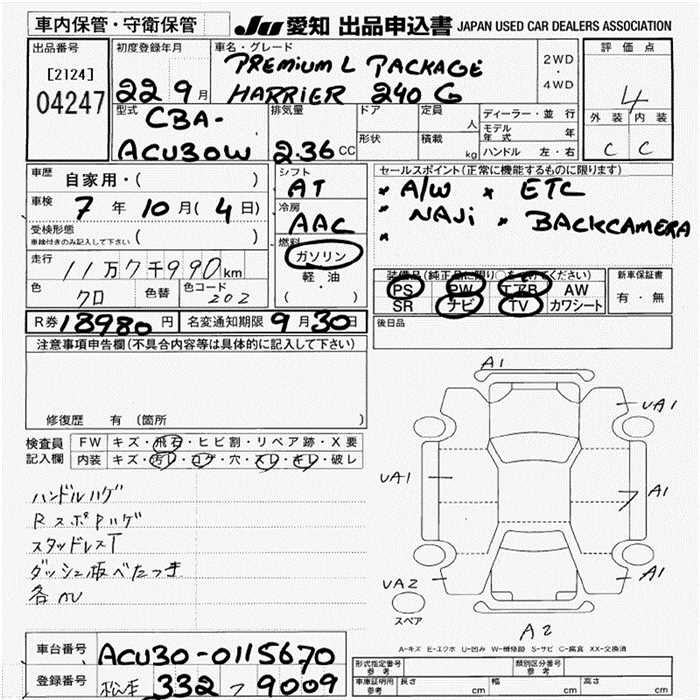 車内保管・守衛保管 JU 愛知 出品申込書 JAPAN USED CAR DEALERS ASSOCIATION
出品番号 初度登録年月 車名・グレード 評価点
[2124] PREMIUM L PACKAGE 2WD
04247 22 9月 HARRIER 240 G ・ 4WD 4
型式 排気量 ドア 定員 人 ディーラー・並行 外装 内装
CBA- モデル年式 年 C C
ACU30W 2.36 CC 形状 積載 kg ハンドル 左・右
車歴 自家用・( ) シフト セールスポイント(正常に機能するものに限ります)
AT * A/W * ETC
車検 7年10月(4日) 冷房 * NAVi * BACKCAMERA
受検形態 ( ) AAC *
車検付きのみ記入して下さい 燃料
走行 11万7千990km ガソリン 装備品(純正品に限り○をつけてください) 新車保証書
色 クロ 色替 色コード 202 軽・油 PS PW エアB AW 有・無
( ) SR ナビ TV カワシート
R券 18980円 名変通知期限 9月30日 後日品
注意事項申告欄(不具合内容等は具体的に記入して下さい)
修復歴 有 (箇所 )
検査員 FW キズ・飛石・ヒビ割・リペア跡・X要
記入欄 内装 キズ・汚レ・コゲ・穴・スレ・キレ・破レ
ハンドルハゲ
RスポPハゲ
スタッドレスT
ダッシュ板べたつき
各AU
A1
UA1
UA1
A1
A1
UA2
スペア
A2
A-キズ E-エクボ U-凹み W-補修跡 S-サビ C-腐食 XX-交換済
車台番号 ACU30-0115670 形式指定番号 参考 類別区分番号 参考
登録番号 松本 332 フ 9009 車庫証明用 参考 長さ cm 幅 cm 高さ cm